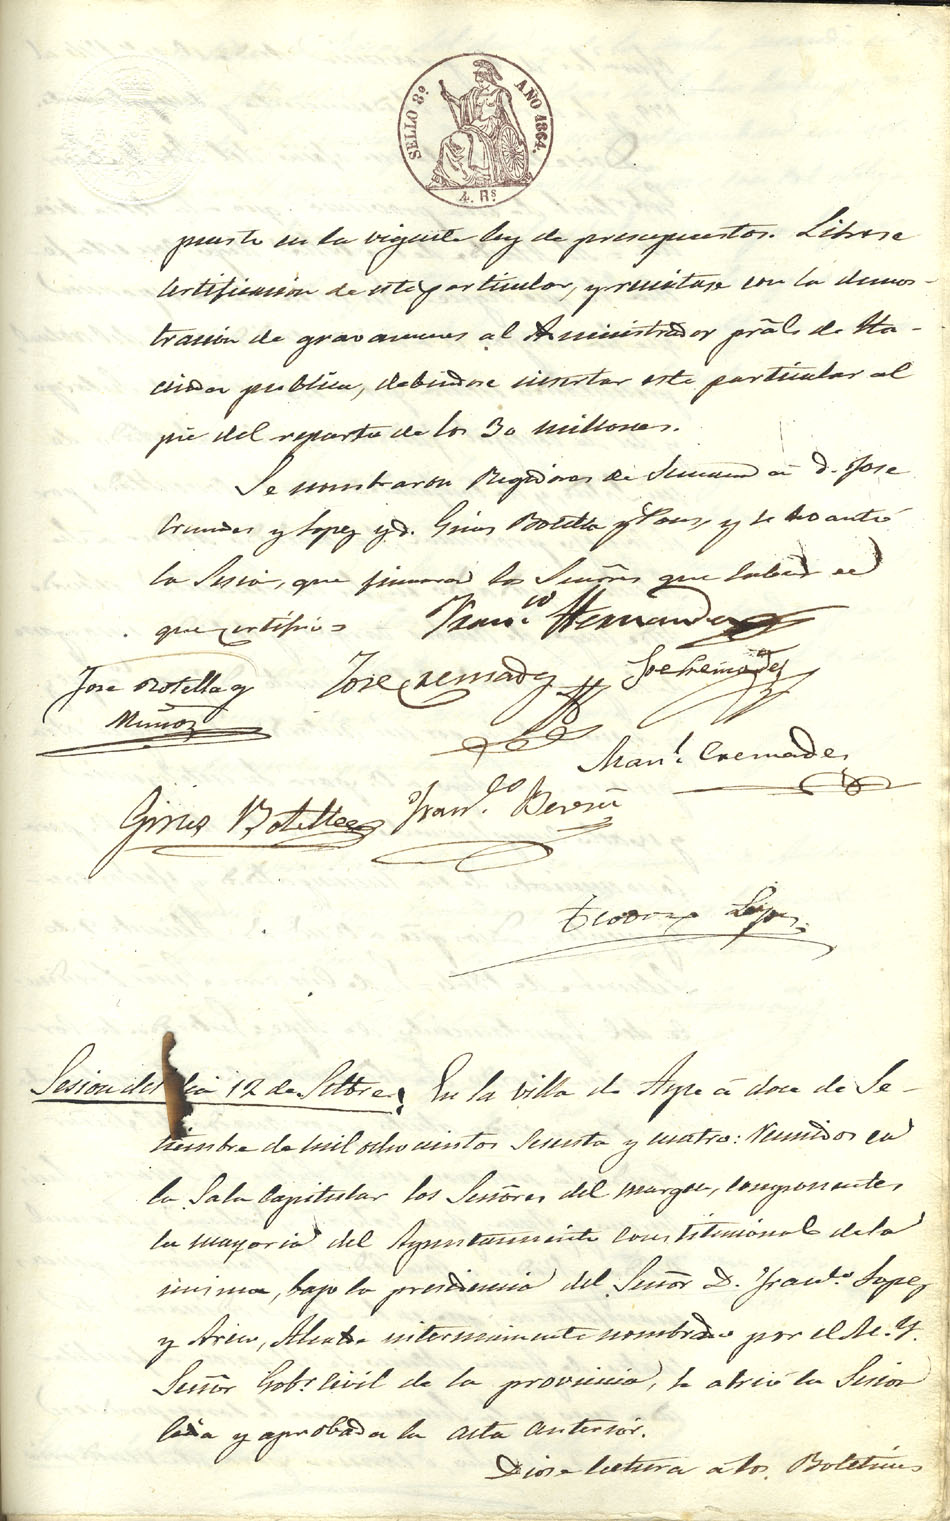 SELLO 8º AÑO 1864.
4. Rs
puesto en la vigente ley de presupuestos. Librese
certificacion de este particular, y remitase con la demos-
tracion de gravamenes al Administrador pral. de Ha-
cienda publica, debiendose insertar este particular al
pie del reparto de los 30 millones.
Se nombraron Regidores de Semana a D. Jose
Cremades y Lopez y D. Gines Botella y Pons, y se levantó
la Sesion, que firmaron los Señores que saben de
que certifico =
Franco. Hernandez
Jose Botella y
Muñoz
Jose Cremades
Jose Cremades
Manl. Cremades
Gines Botella
Franco. Beresú
Teodoro Lopez
Sesion del dia 12 de Setbre. En la villa de Aspe á doce de Se-
tiembre de mil ochocientos sesenta y cuatro: Reunidos en
la Sala Capitular los Señores del margen, componentes
la mayoria del Ayuntamiento Constitucional de la
misma, bajo la presidencia del Señor D. Franco. Lopez
y Arico, Alcalde interinamente nombrado por el M. Y.
Señor Gobr. Civil de la provincia, se abrió la Sesion
leida y aprobada la acta anterior.
Diose lectura a los Boletines